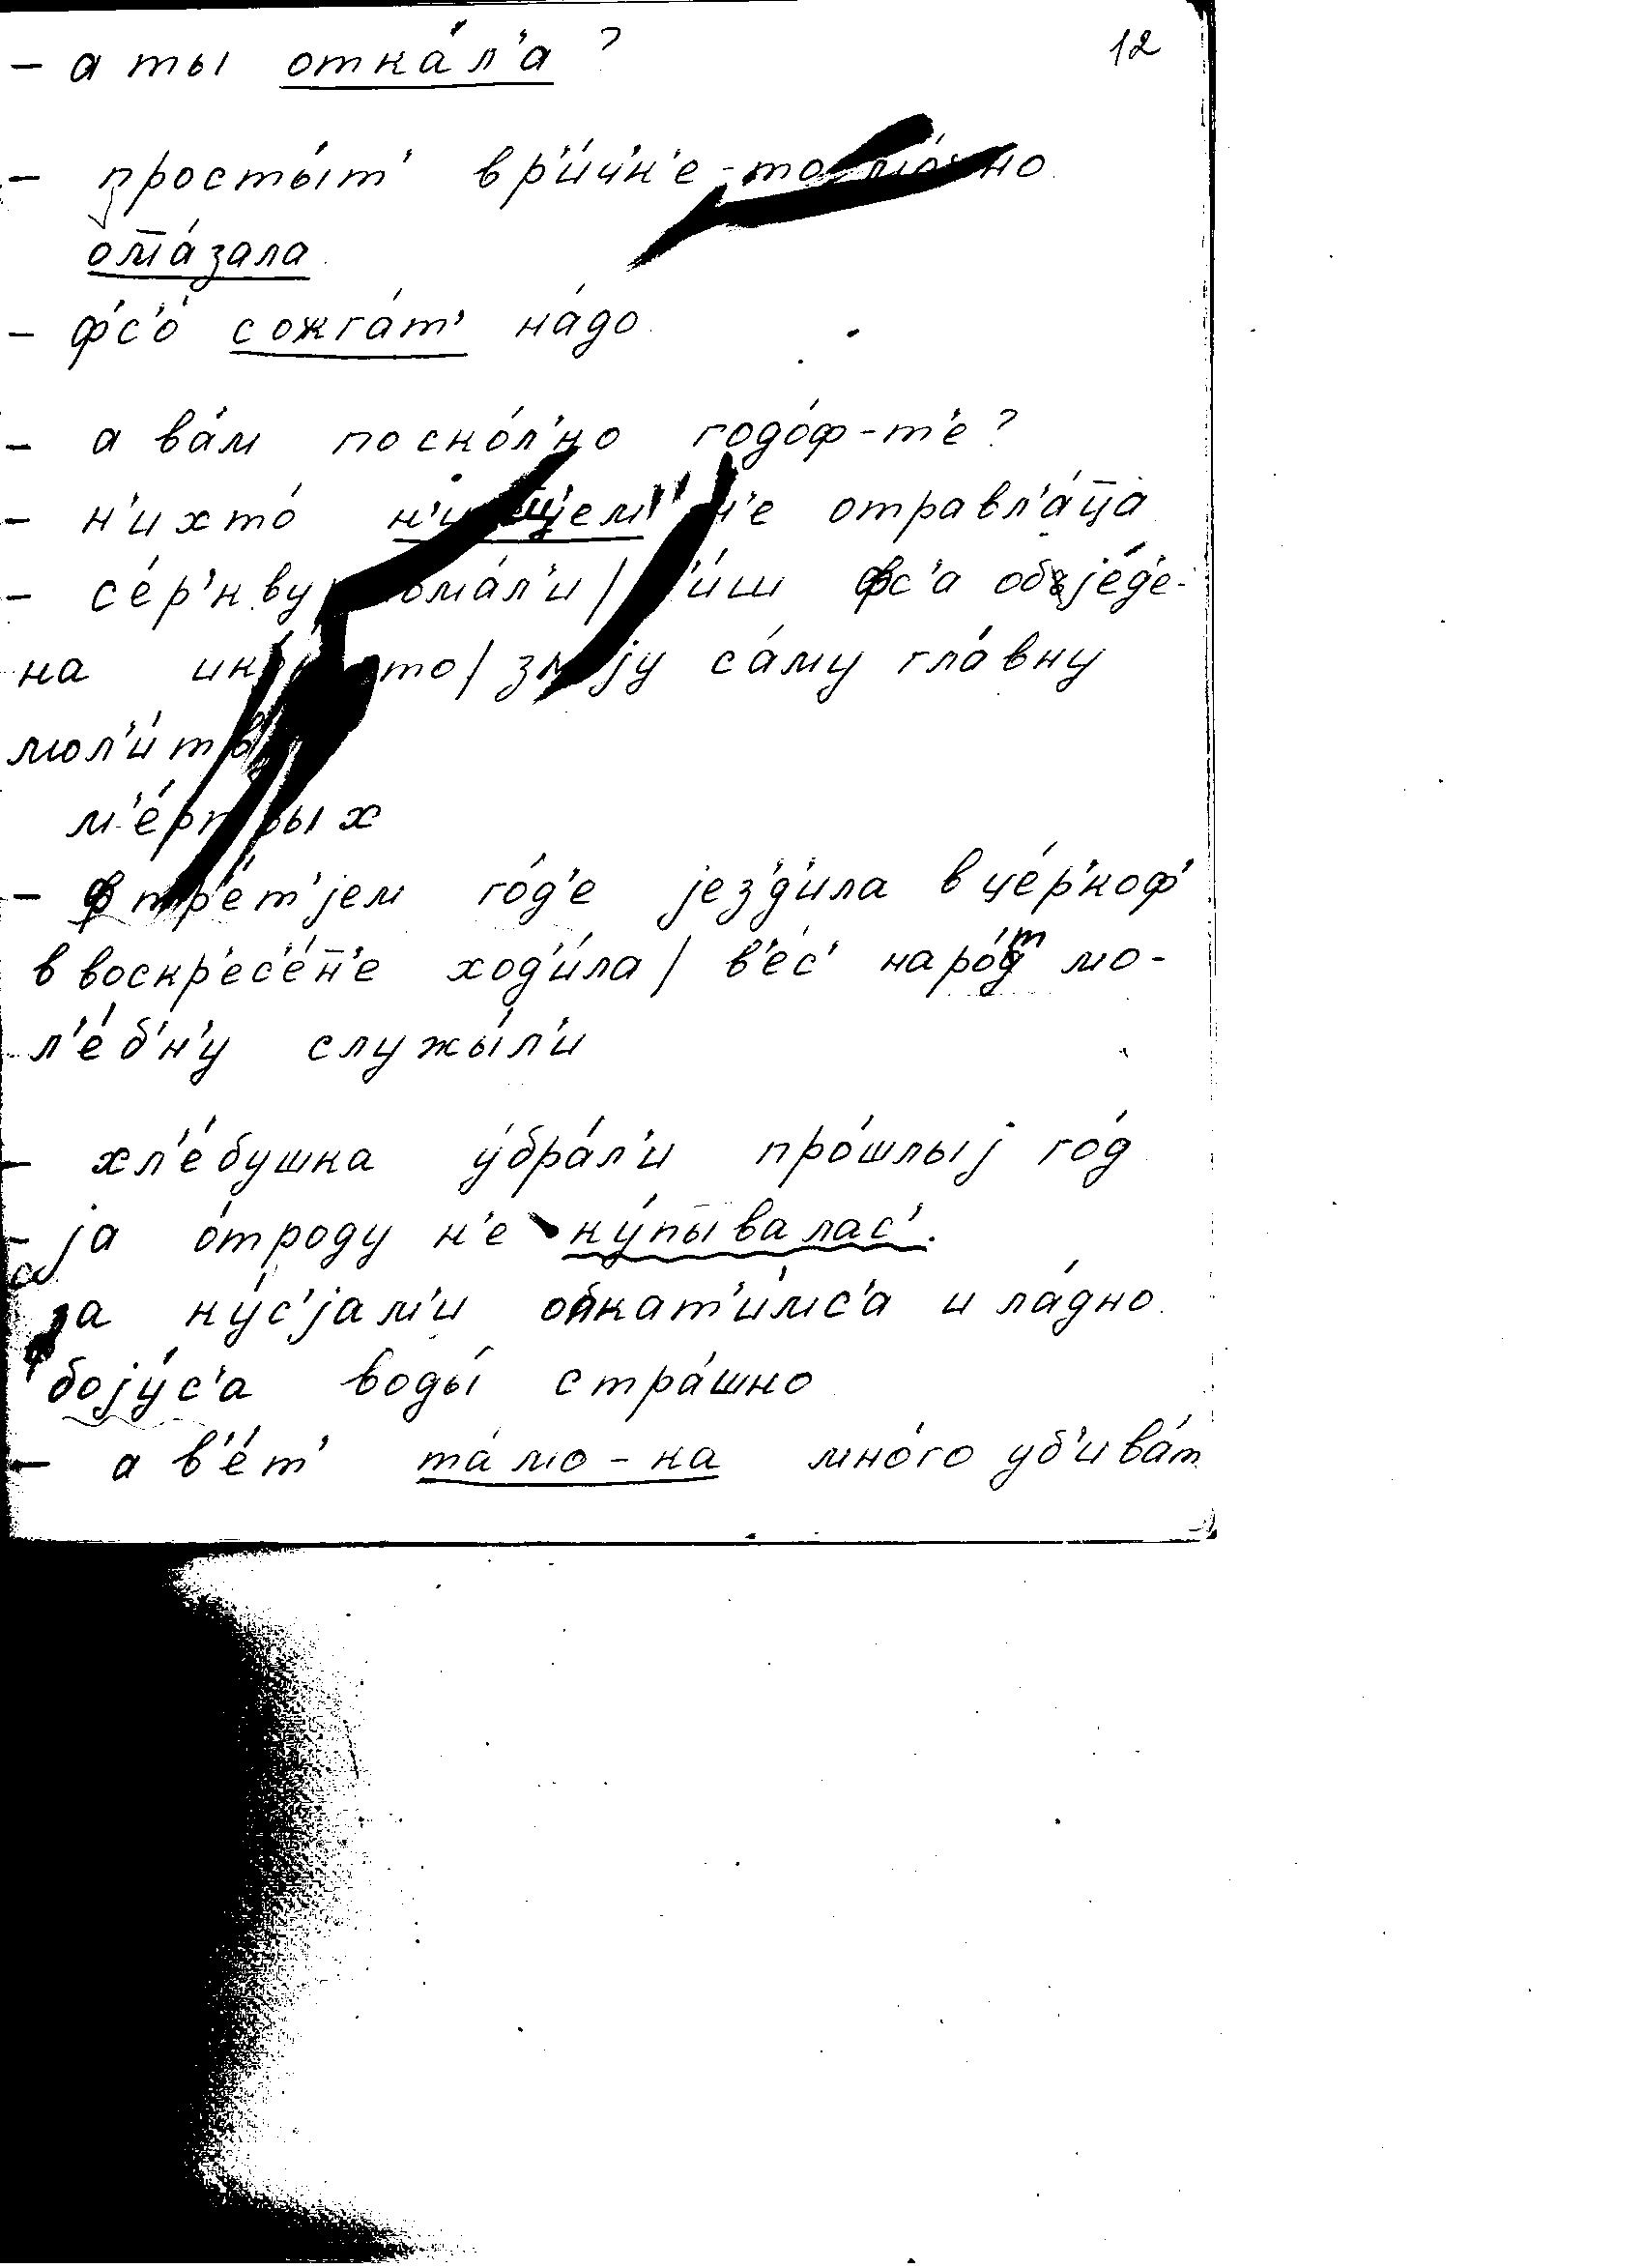 12
– а ты отка́л'а?
– просты́т' в р'и́чк'е-то
от̄а́зала
– ф'с'о́ сожга́т' на́до
– а ва́м поско́л'ко годо́ф-т'е?
– н'ихто́ н'е отравл'а́ц̄а
– се́р'кву фс'а објéд'е-
на са́му гла́вну
мол'и́тву
м'е́ртвых
– ф тр'е́т'јем го́д'е јез'д'ила в це́р'коф'
в воскр'ес'е́н̄'е ход'и́ла / в'е́с' наро́т мо-
л'е́б'н'у служы́л'и
– хл'е́бушка у́бра́л'и про́шлыј го́д
– ја о́троду н'е ку́пывалас'.
за ку́с'јам'и обкат'и́мс'а и ла́дно
боју́с'а воды́ стра́шно
– а в'е́т' та́мо-ка мно́го уб'ива́т